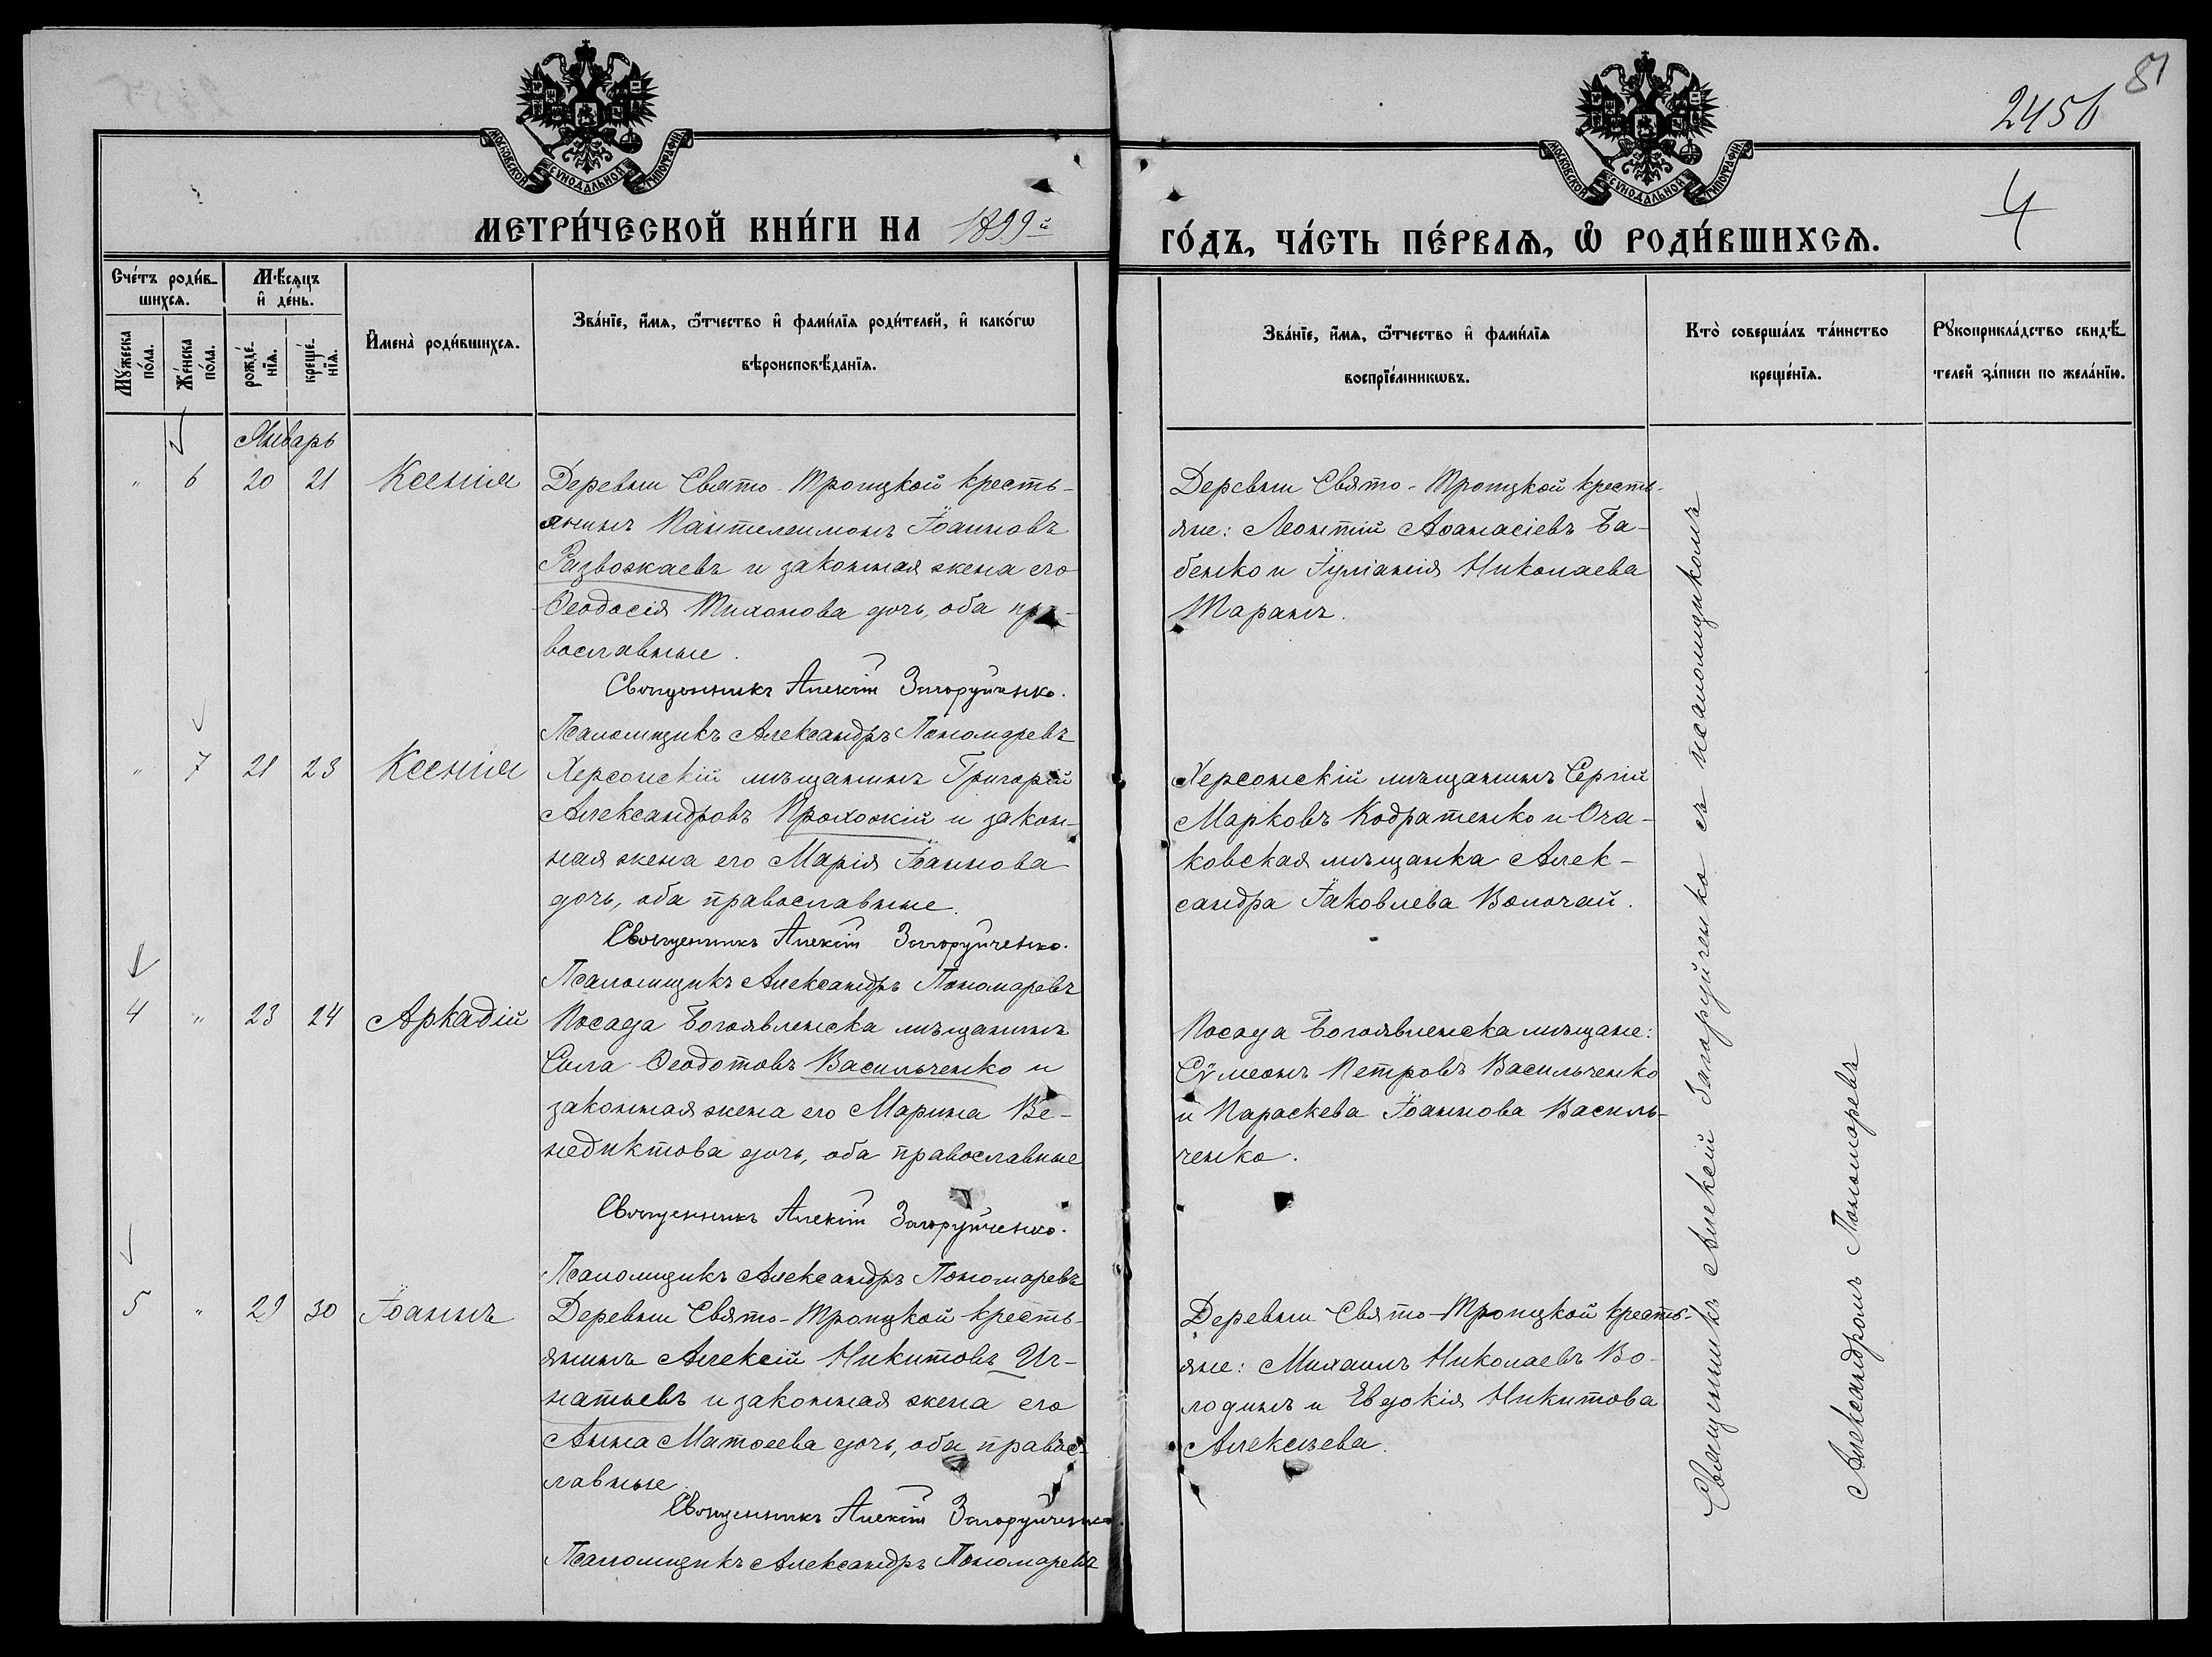 2456
51
4
МОСКОВСКОЙ СѴНОДАЛЬНОЙ ТИПОГРАФІИ
МОСКОВСКОЙ СѴНОДАЛЬНОЙ ТИПОГРАФІИ
МЕТРИ́ЧЕСКОЙ КНИ́ГИ НА 1899й
ГО́ДЪ, ЧА́СТЬ ПЕ́РВАѦ, Ѡ҆ РОДИ́ВШИХСѦ.
Сче́тъ роди́в-
шихсѧ.
Мѣ́сѧцъ
и҆ де́нь.
Мꙋ́жеска
по́ла.
Же́нска
по́ла.
рожде́-
нїѧ.
креще́-
нїѧ.
И҆мена̀ роди́вшихсѧ.
Зва́нїе, и҆́мѧ, ѻ҆́тчество и҆ фами́лїѧ роди́телей, и҆ како́гѡ
вѣроисповѣ́данїѧ.
Зва́нїе, и҆́мѧ, ѻ҆́тчество и҆ фами́лїѧ
воспрїе́мникѡвъ.
Кто̀ соверша́лъ та́инство
креще́нїѧ.
Рꙋкоприкла́дство свидѣ́-
телей за́писи по жела́нїю.
Январь
" 6 20 21 Ксенія
Деревни Свято-Троицкой кресть-
янинъ Пантелеимонъ Іоанновъ
Развожаевъ и законная жена его
Ѳеодосія Тихонова дочь, оба пра-
вославные.
Священникъ Алексій Загоруйченко.
Псаломщикъ Александръ Пономаревъ
Деревни Свято-Троицкой кресть-
яне: Леонтій Аѳанасіевъ Ба-
бенко и Іуліанія Николаева
Таранъ.
" 7 21 23 Ксенія
Херсонскій мѣщанинъ Григорій
Александровъ Прохожій и закон-
ная жена его Марія Іоаннова
дочь, оба православные.
Священникъ Алексій Загоруйченко.
Псаломщикъ Александръ Пономаревъ
Херсонскій мѣщанинъ Сергій
Марковъ Кодратенко и Оча-
ковская мѣщанка Алек-
сандра Іаковлева Волочай.
4 " 23 24 Аркадій
Посада Богоявленска мѣщанинъ
Сила Ѳеодотовъ Васильченко и
законная жена его Марина Ве-
недиктова дочь, оба православные
Священникъ Алексій Загоруйченко.
Псаломщикъ Александръ Пономаревъ
Посада Богоявленска мѣщане:
Сѵмеонъ Петровъ Васильченко
и Параскева Іоаннова Василь-
ченко.
5 " 29 30 Іоаннъ
Деревни Свято-Троицкой кресть-
янинъ Алексій Никитовъ Иг-
натьевъ и законная жена его
Анна Матѳеева дочь, оба правос-
лавные.
Священникъ Алексій Загоруйченко.
Псаломщикъ Александръ Пономаревъ
Деревни Свято-Троицкой кресть-
яне: Михаилъ Николаевъ Во-
лодинъ и Евдокія Никитова
Алексѣева.
Священникъ Алексій Загоруйченко съ псаломщикомъ
Александромъ Пономаревъ